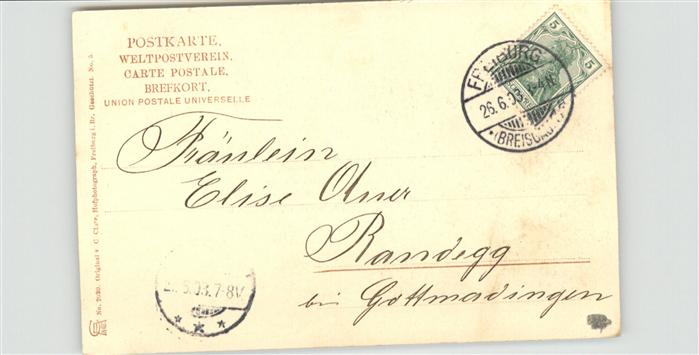 POSTKARTE.
WELTPOSTVEREIN.
CARTE POSTALE.
BREFKORT.
UNION POSTALE UNIVERSELLE
5
5
FREIBURG
26.6.03.
(BREISGAU)
Fräulein
Elise Auer
Randegg
bei Gottmadingen
.6.03.7-8V
Hofphotograph, Freiburg i. Br. Gesehützt No. 5